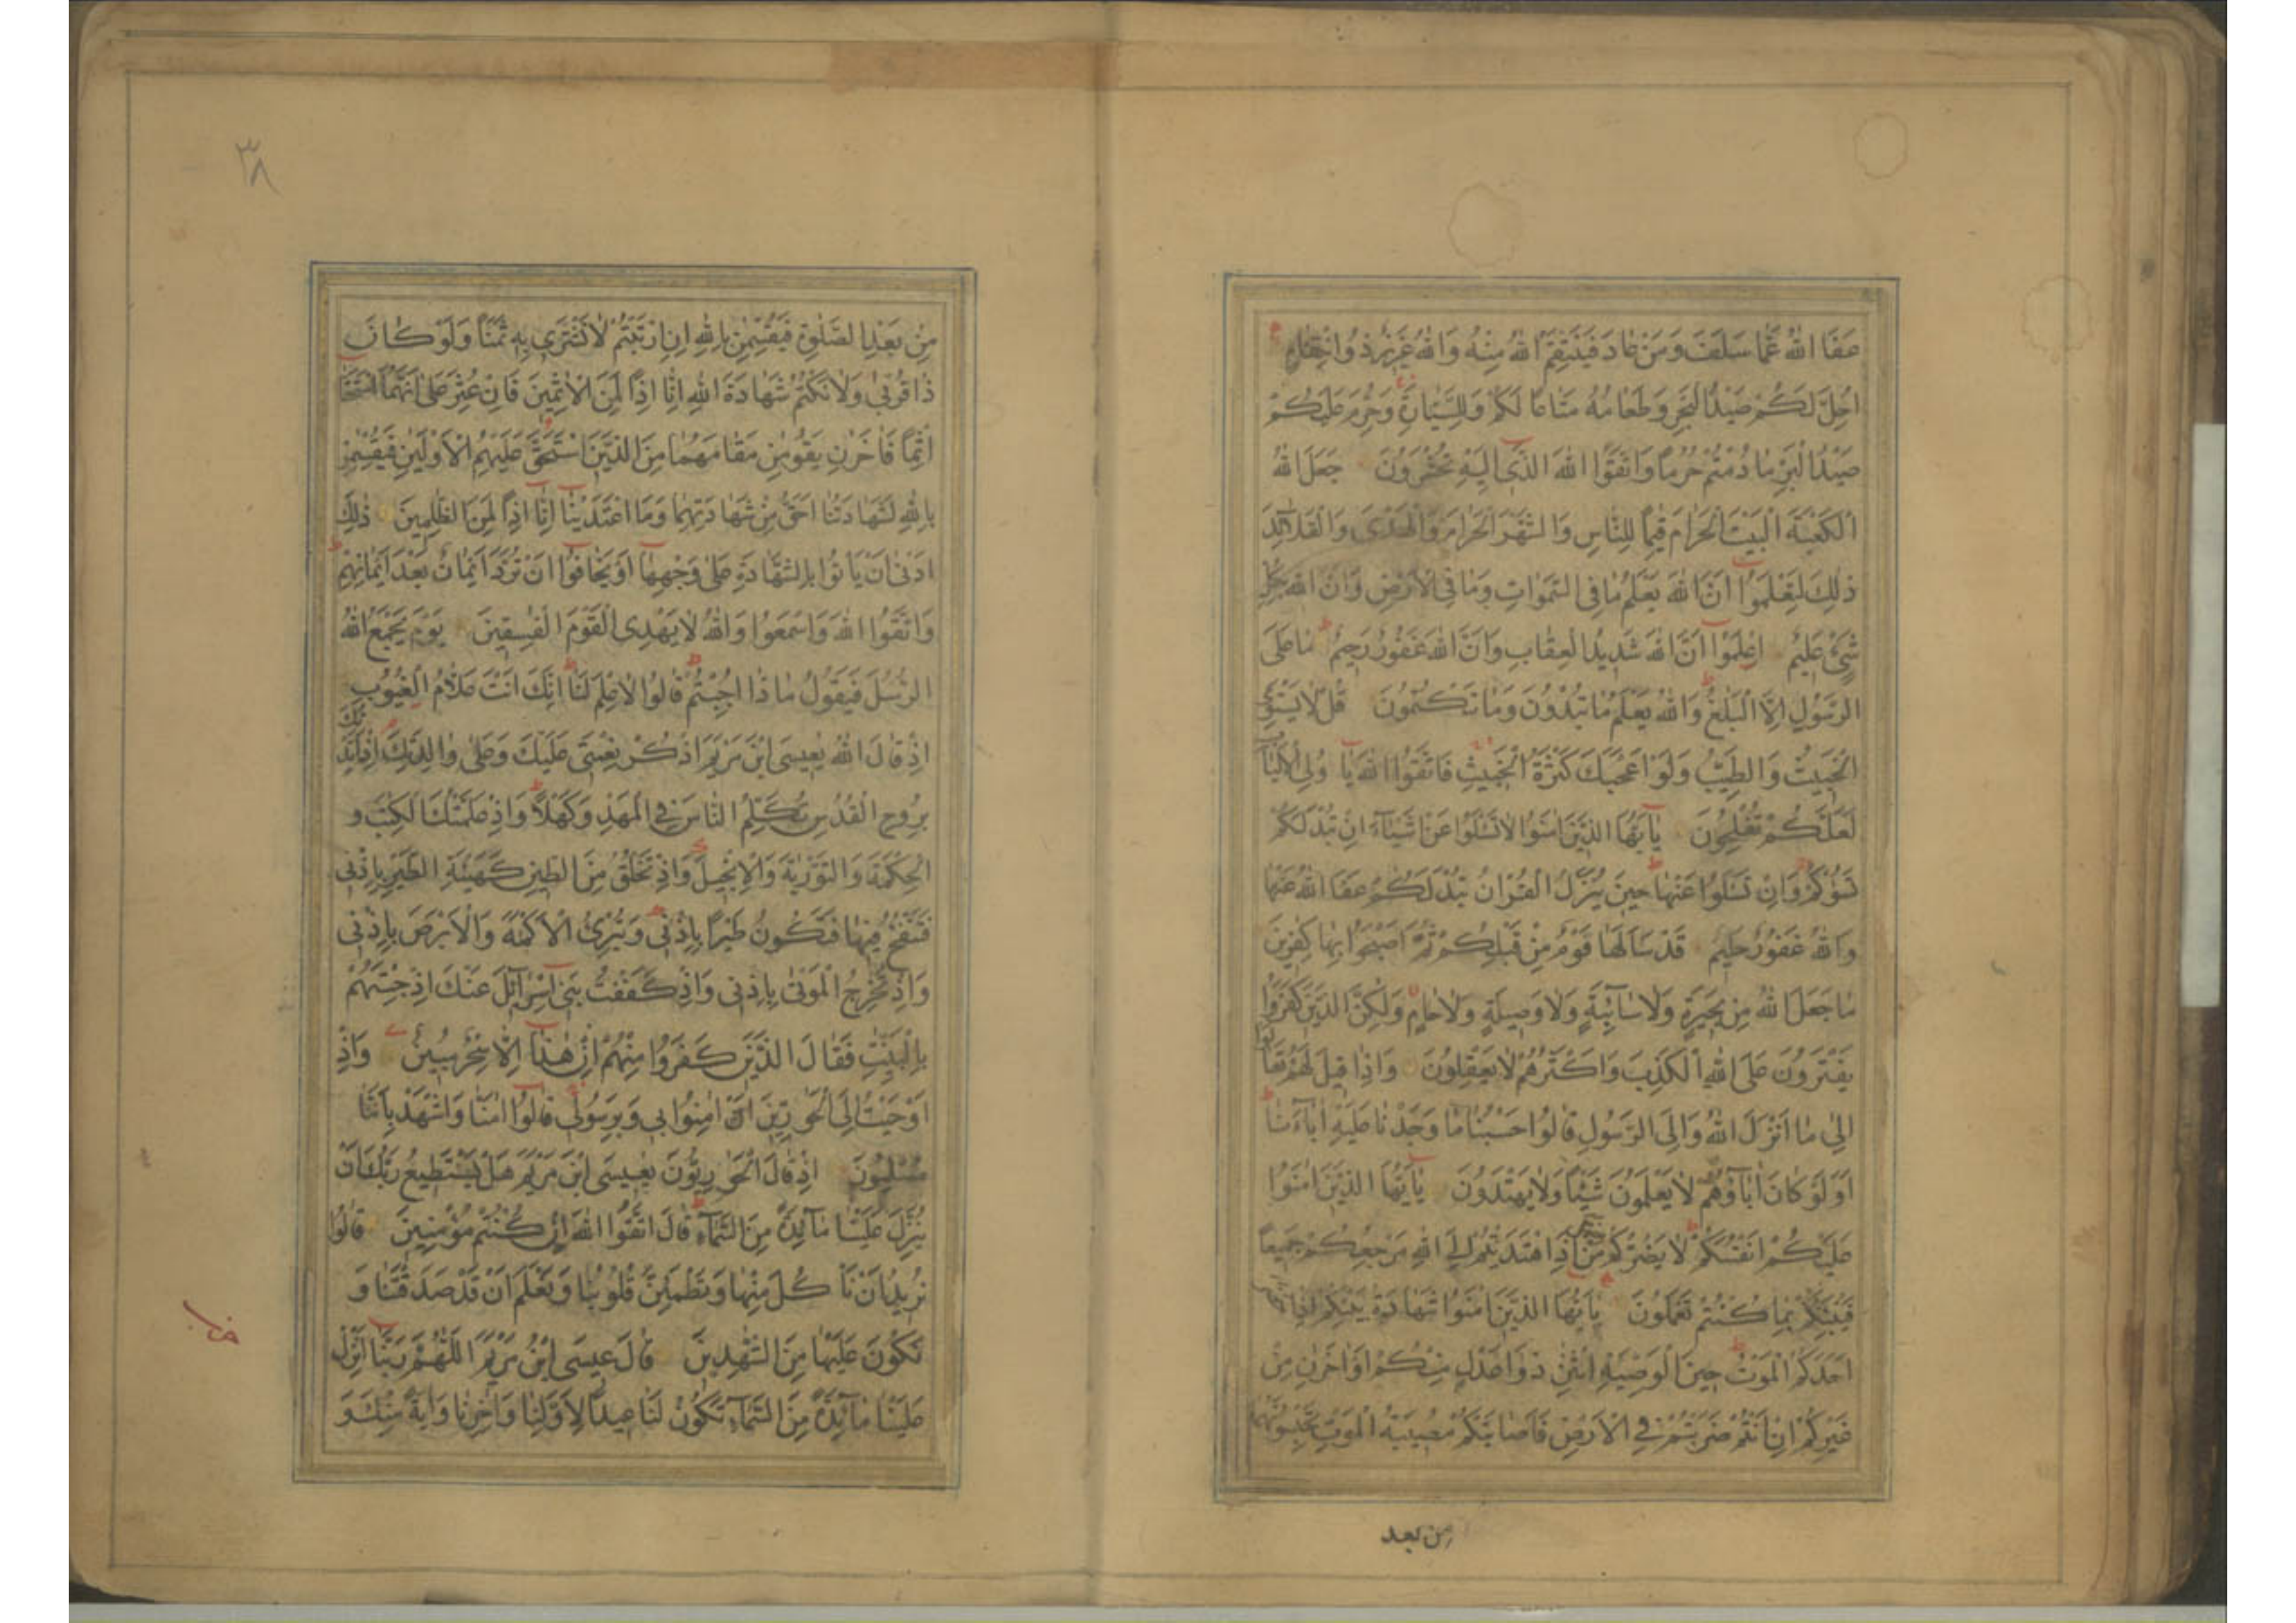 عَفَا اللهُ عَمَّا سَلَفَ وَمَنْ عَادَ فَيَنْتَقِمُ اللهُ مِنْهُ وَاللهُ عَزِيزٌ ذُو انْتِقَامٍ
اُحِلَّ لَكُمْ صَيْدُ الْبَحْرِ وَطَعَامُهُ مَتَاعًا لَكُمْ وَلِلسَّيَّارَةِ وَحُرِّمَ عَلَيْكُمْ
صَيْدُ الْبَرِّ مَا دُمْتُمْ حُرُمًا وَاتَّقُوا اللهَ الَّذِي اِلَيْهِ تُحْشَرُونَ جَعَلَ اللهُ
الْكَعْبَةَ الْبَيْتَ الْحَرَامَ قِيٰمًا لِلنَّاسِ وَالشَّهْرَ الْحَرَامَ وَالْهَدْيَ وَالْقَلَآئِدَ
ذٰلِكَ لِتَعْلَمُوا اَنَّ اللهَ يَعْلَمُ مَا فِي السَّمٰوَاتِ وَمَا فِي الْاَرْضِ وَاَنَّ اللهَ بِكُلِّ
شَيْءٍ عَلِيمٌ اِعْلَمُوا اَنَّ اللهَ شَدِيدُ الْعِقَابِ وَاَنَّ اللهَ غَفُورٌ رَحِيمٌ مَا عَلَى
الرَّسُولِ اِلَّا الْبَلٰغُ وَاللهُ يَعْلَمُ مَا تُبْدُونَ وَمَا تَكْتُمُونَ قُلْ لَا يَسْتَوِي
الْخَبِيثُ وَالطَّيِّبُ وَلَوْ اَعْجَبَكَ كَثْرَةُ الْخَبِيثِ فَاتَّقُوا اللهَ يَا وُلِي الْاَلْبَابِ
لَعَلَّكُمْ تُفْلِحُونَ يَآ اَيُّهَا الَّذِينَ اٰمَنُوا لَا تَسْـَٔلُوا عَنْ اَشْيَآءَ اِنْ تُبْدَ لَكُمْ
تَسُؤْكُمْ وَاِنْ تَسْـَٔلُوا عَنْهَا حِينَ يُنَزَّلُ الْقُرْاٰنُ تُبْدَ لَكُمْ عَفَا اللهُ عَنْهَا
وَاللهُ غَفُورٌ حَلِيمٌ قَدْ سَاَلَهَا قَوْمٌ مِنْ قَبْلِكُمْ ثُمَّ اَصْبَحُوا بِهَا كٰفِرِينَ
مَا جَعَلَ اللهُ مِنْ بَحِيرَةٍ وَلَا سَآئِبَةٍ وَلَا وَصِيلَةٍ وَلَا حَامٍ وَلٰكِنَّ الَّذِينَ كَفَرُوا
يَفْتَرُونَ عَلَى اللهِ الْكَذِبَ وَاَكْثَرُهُمْ لَا يَعْقِلُونَ وَاِذَا قِيلَ لَهُمْ تَعَالَوْا
اِلٰى مَا اَنْزَلَ اللهُ وَاِلَى الرَّسُولِ قَالُوا حَسْبُنَا مَا وَجَدْنَا عَلَيْهِ اٰبَآءَنَا
اَوَلَوْ كَانَ اٰبَآؤُهُمْ لَا يَعْلَمُونَ شَيْئًا وَلَا يَهْتَدُونَ يَآ اَيُّهَا الَّذِينَ اٰمَنُوا
عَلَيْكُمْ اَنْفُسَكُمْ لَا يَضُرُّكُمْ مَنْ ضَلَّ اِذَا اهْتَدَيْتُمْ اِلَى اللهِ مَرْجِعُكُمْ جَمِيعًا
فَيُنَبِّئُكُمْ بِمَا كُنْتُمْ تَعْمَلُونَ يَآ اَيُّهَا الَّذِينَ اٰمَنُوا شَهَادَةُ بَيْنِكُمْ اِذَا حَضَرَ
اَحَدَكُمُ الْمَوْتُ حِينَ الْوَصِيَّةِ اثْنٰنِ ذَوَا عَدْلٍ مِنْكُمْ اَوْ اٰخَرٰنِ مِنْ
غَيْرِكُمْ اِنْ اَنْتُمْ ضَرَبْتُمْ فِي الْاَرْضِ فَاَصَابَتْكُمْ مُصِيبَةُ الْمَوْتِ تَحْبِسُونَهُمَا
مِن بعد
٣٨
مِنْ بَعْدِ الصَّلٰوةِ فَيُقْسِمٰنِ بِاللهِ اِنِ ارْتَبْتُمْ لَا نَشْتَرِي بِهِ ثَمَنًا وَلَوْ كَانَ
ذَا قُرْبٰى وَلَا نَكْتُمُ شَهَادَةَ اللهِ اِنَّا اِذًا لَمِنَ الْاٰثِمِينَ فَاِنْ عُثِرَ عَلٰى اَنَّهُمَا اسْتَحَقَّا
اِثْمًا فَاٰخَرٰنِ يَقُومٰنِ مَقَامَهُمَا مِنَ الَّذِينَ اسْتَحَقَّ عَلَيْهِمُ الْاَوْلَيٰنِ فَيُقْسِمٰنِ
بِاللهِ لَشَهَادَتُنَا اَحَقُّ مِنْ شَهَادَتِهِمَا وَمَا اعْتَدَيْنَا اِنَّا اِذًا لَمِنَ الظّٰلِمِينَ ذٰلِكَ
اَدْنٰى اَنْ يَاْتُوا بِالشَّهَادَةِ عَلٰى وَجْهِهَا اَوْ يَخَافُوا اَنْ تُرَدَّ اَيْمَانٌ بَعْدَ اَيْمَانِهِمْ
وَاتَّقُوا اللهَ وَاسْمَعُوا وَاللهُ لَا يَهْدِي الْقَوْمَ الْفٰسِقِينَ يَوْمَ يَجْمَعُ اللهُ
الرُّسُلَ فَيَقُولُ مَاذَا اُجِبْتُمْ قَالُوا لَا عِلْمَ لَنَا اِنَّكَ اَنْتَ عَلَّامُ الْغُيُوبِ
اِذْ قَالَ اللهُ يٰعِيسَى ابْنَ مَرْيَمَ اذْكُرْ نِعْمَتِي عَلَيْكَ وَعَلٰى وَالِدَتِكَ اِذْ اَيَّدْتُكَ
بِرُوحِ الْقُدُسِ تُكَلِّمُ النَّاسَ فِي الْمَهْدِ وَكَهْلًا وَاِذْ عَلَّمْتُكَ الْكِتٰبَ وَ
الْحِكْمَةَ وَالتَّوْرٰيةَ وَالْاِنْجِيلَ وَاِذْ تَخْلُقُ مِنَ الطِّينِ كَهَيْئَةِ الطَّيْرِ بِاِذْنِي
فَتَنْفُخُ فِيهَا فَتَكُونُ طَيْرًا بِاِذْنِي وَتُبْرِئُ الْاَكْمَهَ وَالْاَبْرَصَ بِاِذْنِي
وَاِذْ تُخْرِجُ الْمَوْتٰى بِاِذْنِي وَاِذْ كَفَفْتُ بَنِي اِسْرَآئِلَ عَنْكَ اِذْ جِئْتَهُمْ
بِالْبَيِّنٰتِ فَقَالَ الَّذِينَ كَفَرُوا مِنْهُمْ اِنْ هٰذَا اِلَّا سِحْرٌ مُبِينٌ وَاِذْ
اَوْحَيْتُ اِلَى الْحَوَارِيّنَ اَنْ اٰمِنُوا بِي وَبِرَسُولِي قَالُوا اٰمَنَّا وَاشْهَدْ بِاَنَّنَا
مُسْلِمُونَ اِذْ قَالَ الْحَوَارِيُّونَ يٰعِيسَى ابْنَ مَرْيَمَ هَلْ يَسْتَطِيعُ رَبُّكَ اَنْ
يُنَزِّلَ عَلَيْنَا مَآئِدَةً مِنَ السَّمَآءِ قَالَ اتَّقُوا اللهَ اِنْ كُنْتُمْ مُؤْمِنِينَ قَالُوا
نُرِيدُ اَنْ نَاْكُلَ مِنْهَا وَتَطْمَئِنَّ قُلُوبُنَا وَنَعْلَمَ اَنْ قَدْ صَدَقْتَنَا وَ
نَكُونَ عَلَيْهَا مِنَ الشّٰهِدِينَ قَالَ عِيسَى ابْنُ مَرْيَمَ اللّٰهُمَّ رَبَّنَا اَنْزِلْ
عَلَيْنَا مَآئِدَةً مِنَ السَّمَآءِ تَكُونُ لَنَا عِيدًا لِاَوَّلِنَا وَاٰخِرِنَا وَاٰيَةً مِنْكَ وَ